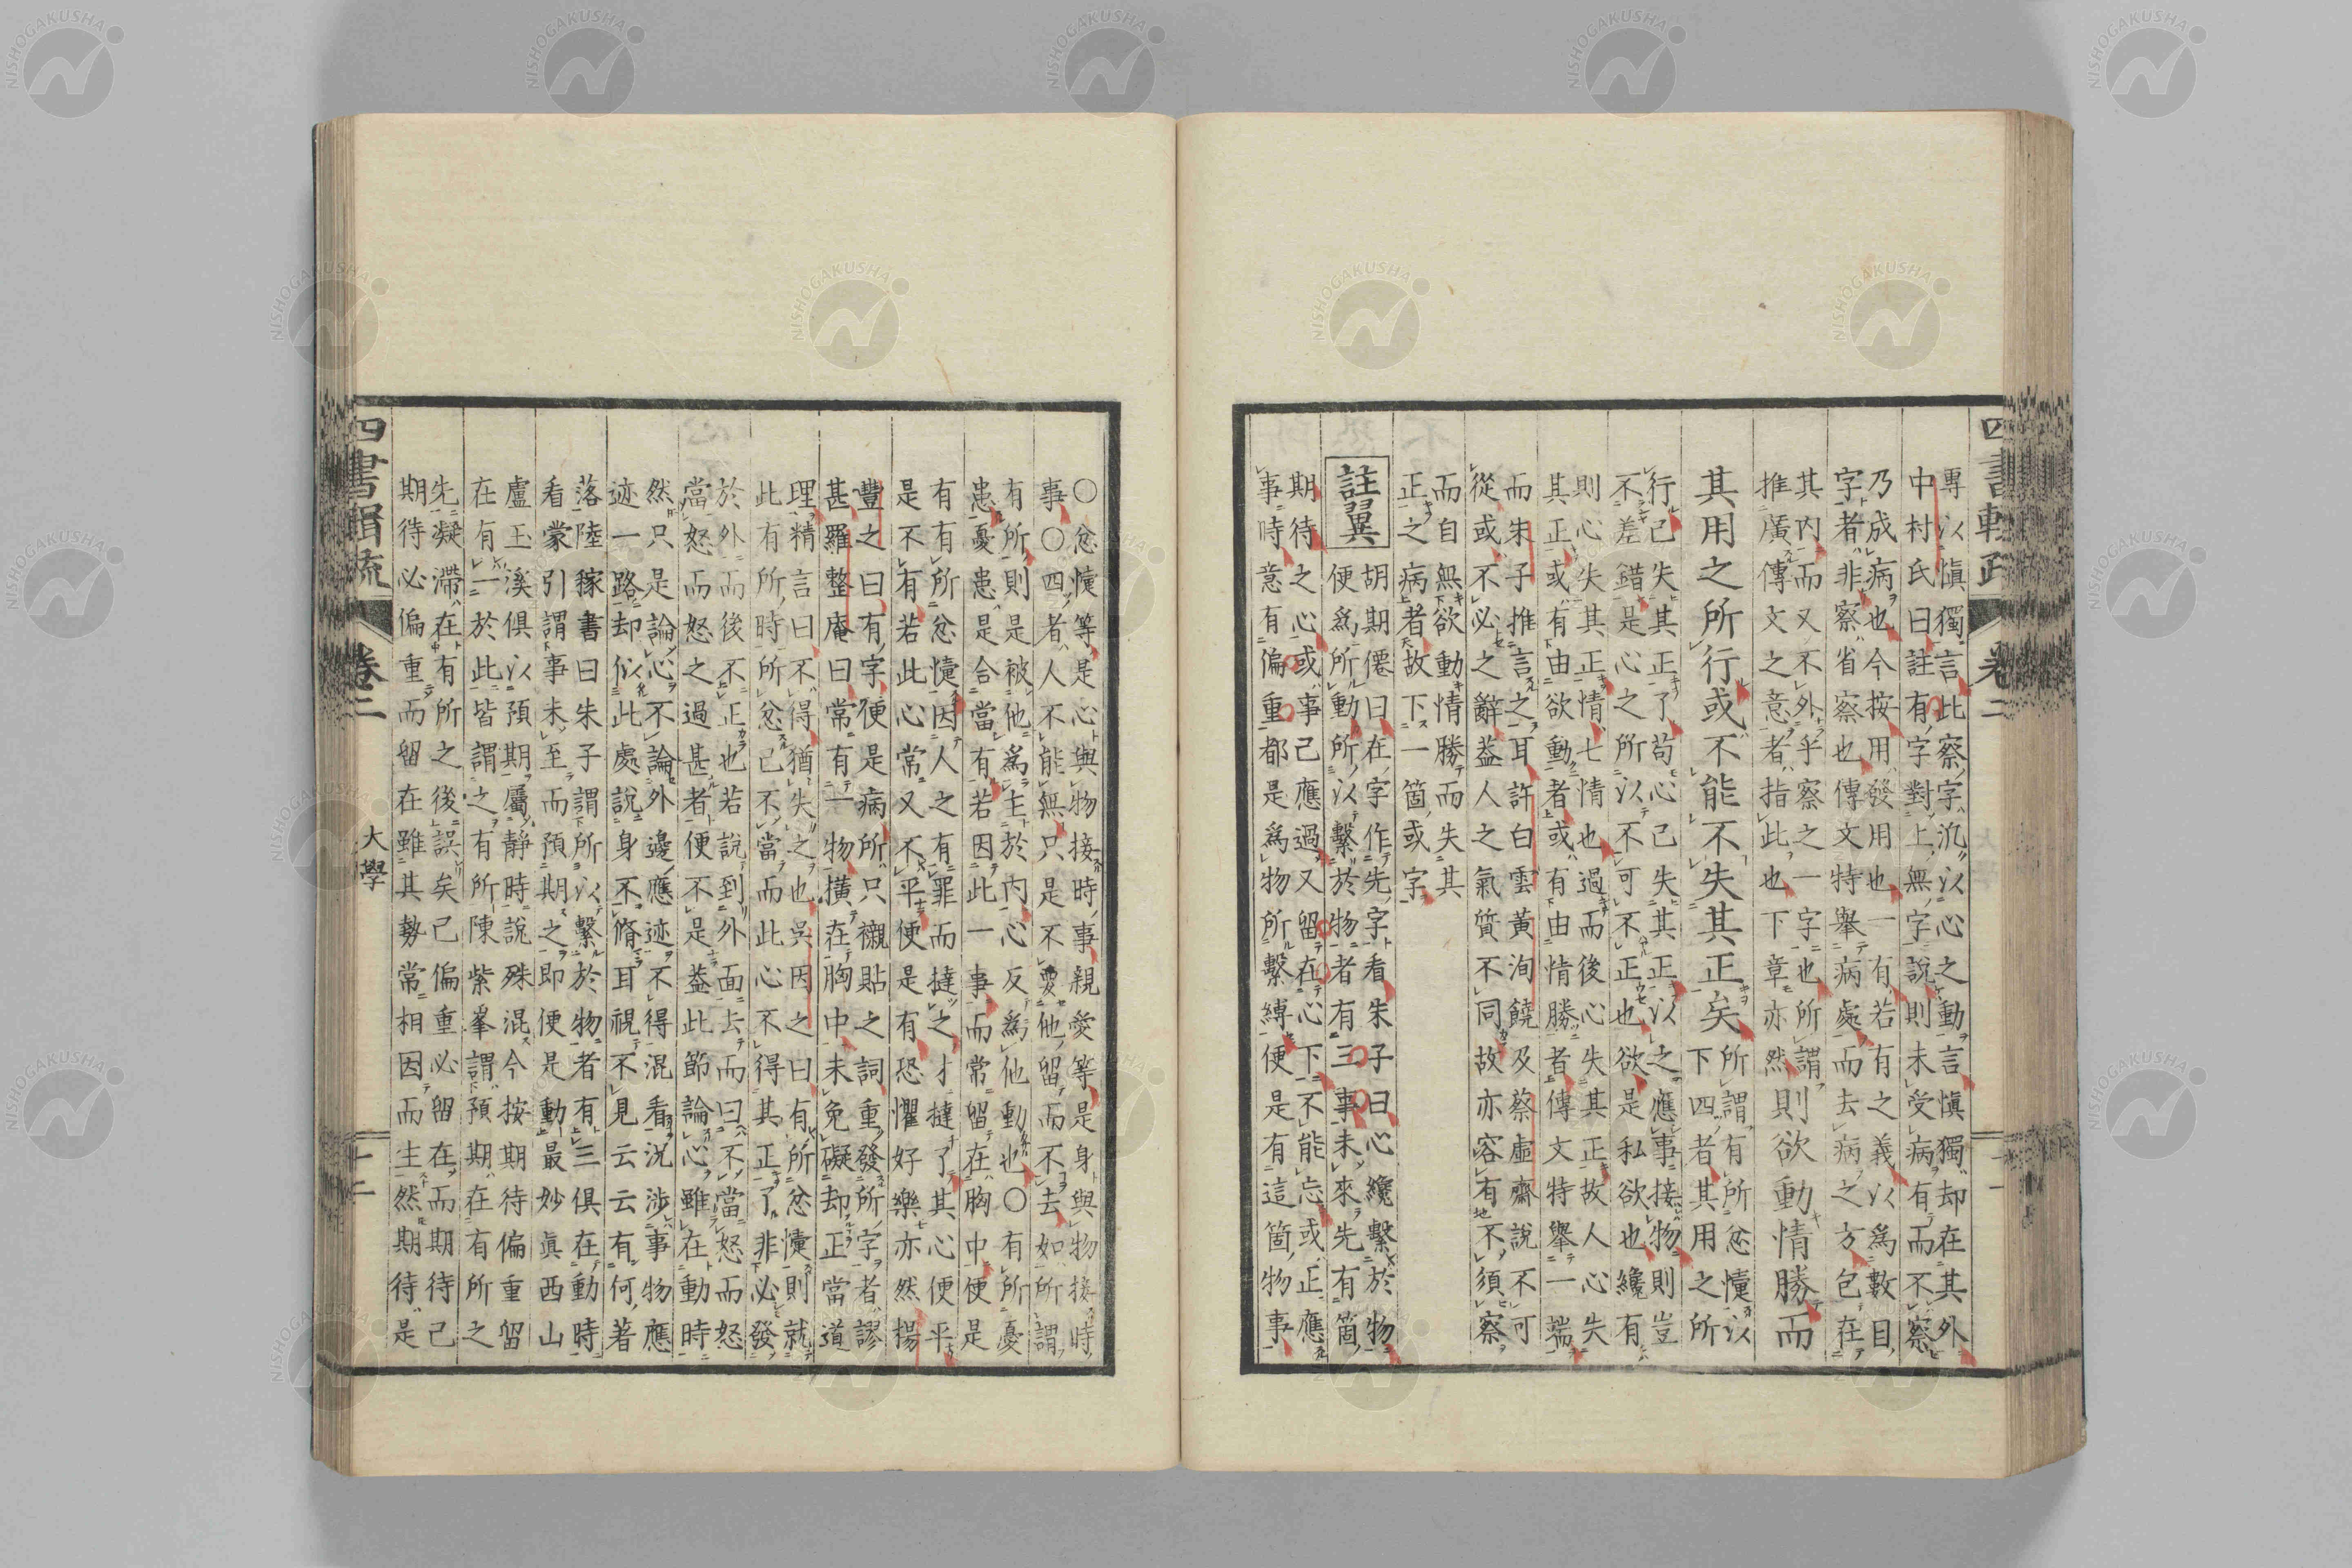 專以愼獨言此察字汎以心之動言愼獨却在其外
中村氏曰註有字對上無字說則未受病有而不察
乃成病也今按用發用也一有若有之義以爲數目
字者非察省察也傳文特舉病處而去病之方包在
其內而又不外乎察之一字也所謂
推廣傳文之意者指此也下章亦然則欲動情勝而
其用之所行或不能不失其正矣所謂有所忿懥以
下四者其用之所
行己失其正了苟心己失其正以之應事接物則豈
不差錯是心之所以不可不正也欲是私欲也纔有
則心失其正情七情也過而後心失其正故人心失
其正或有由欲動者或有由情勝者傳文特舉一端
而朱子推言之耳許白雲黃洵饒及蔡虛齋說不可
從或不必之辭蓋人之氣質不同故亦容有不須察
而自無欲動情勝而失其
正之病者故下一箇或字
註翼
胡期僊曰在字作先字看朱子曰心纔繫於物
便爲所動所以繫於物者有三事未來先有箇
期待之心或事已應過又留在心下不能忘或正應
事時意有偏重都是爲物所繫縛便是有這箇物事
四書輯疏
卷二
○忿懥等是心與物接時事親愛等是身與物接時
事○四者人不能無只是不要他留而不去如所謂
有所則是被他爲主於內心反爲他動也○有所憂
患憂患是合當有若因此一事而常留在胸中便是
有有所忿懥因人之有罪而撻之才撻了其心便平
是不有若此心常又不平便是有恐懼好樂亦然楊
豐之曰有字便是病所只襯貼之詞重發所字者謬
甚羅整庵曰常有一物橫在胸中未免礙却正當道
理精言曰不得猶失之也吳因之曰有所忿懥則就
此有所時所忿己不當而此心不得其正了非必發
於外而後不正也若說到外面去而曰不當怒而怒
當怒而怒之過甚者便不是蓋此節論心雖在動時
然只是論心不論外邊應迹不得混看況涉事物應
迹一路却似此處說身不脩耳視不見云云有何著
落陸稼書曰朱子謂所以繫於物者有三俱在動時
看蒙引謂事未至而預期之卽便是動最妙眞西山
盧玉溪俱以預期屬靜時說殊混今按期待偏重留
在有一於此皆謂之有所陳紫峯謂預期在有所之
先凝滯在有所之後誤矣己偏重必留在而期待己
期待必偏重而留在雖其勢常相因而生然期待是
四書輯疏
卷二
大學
十二